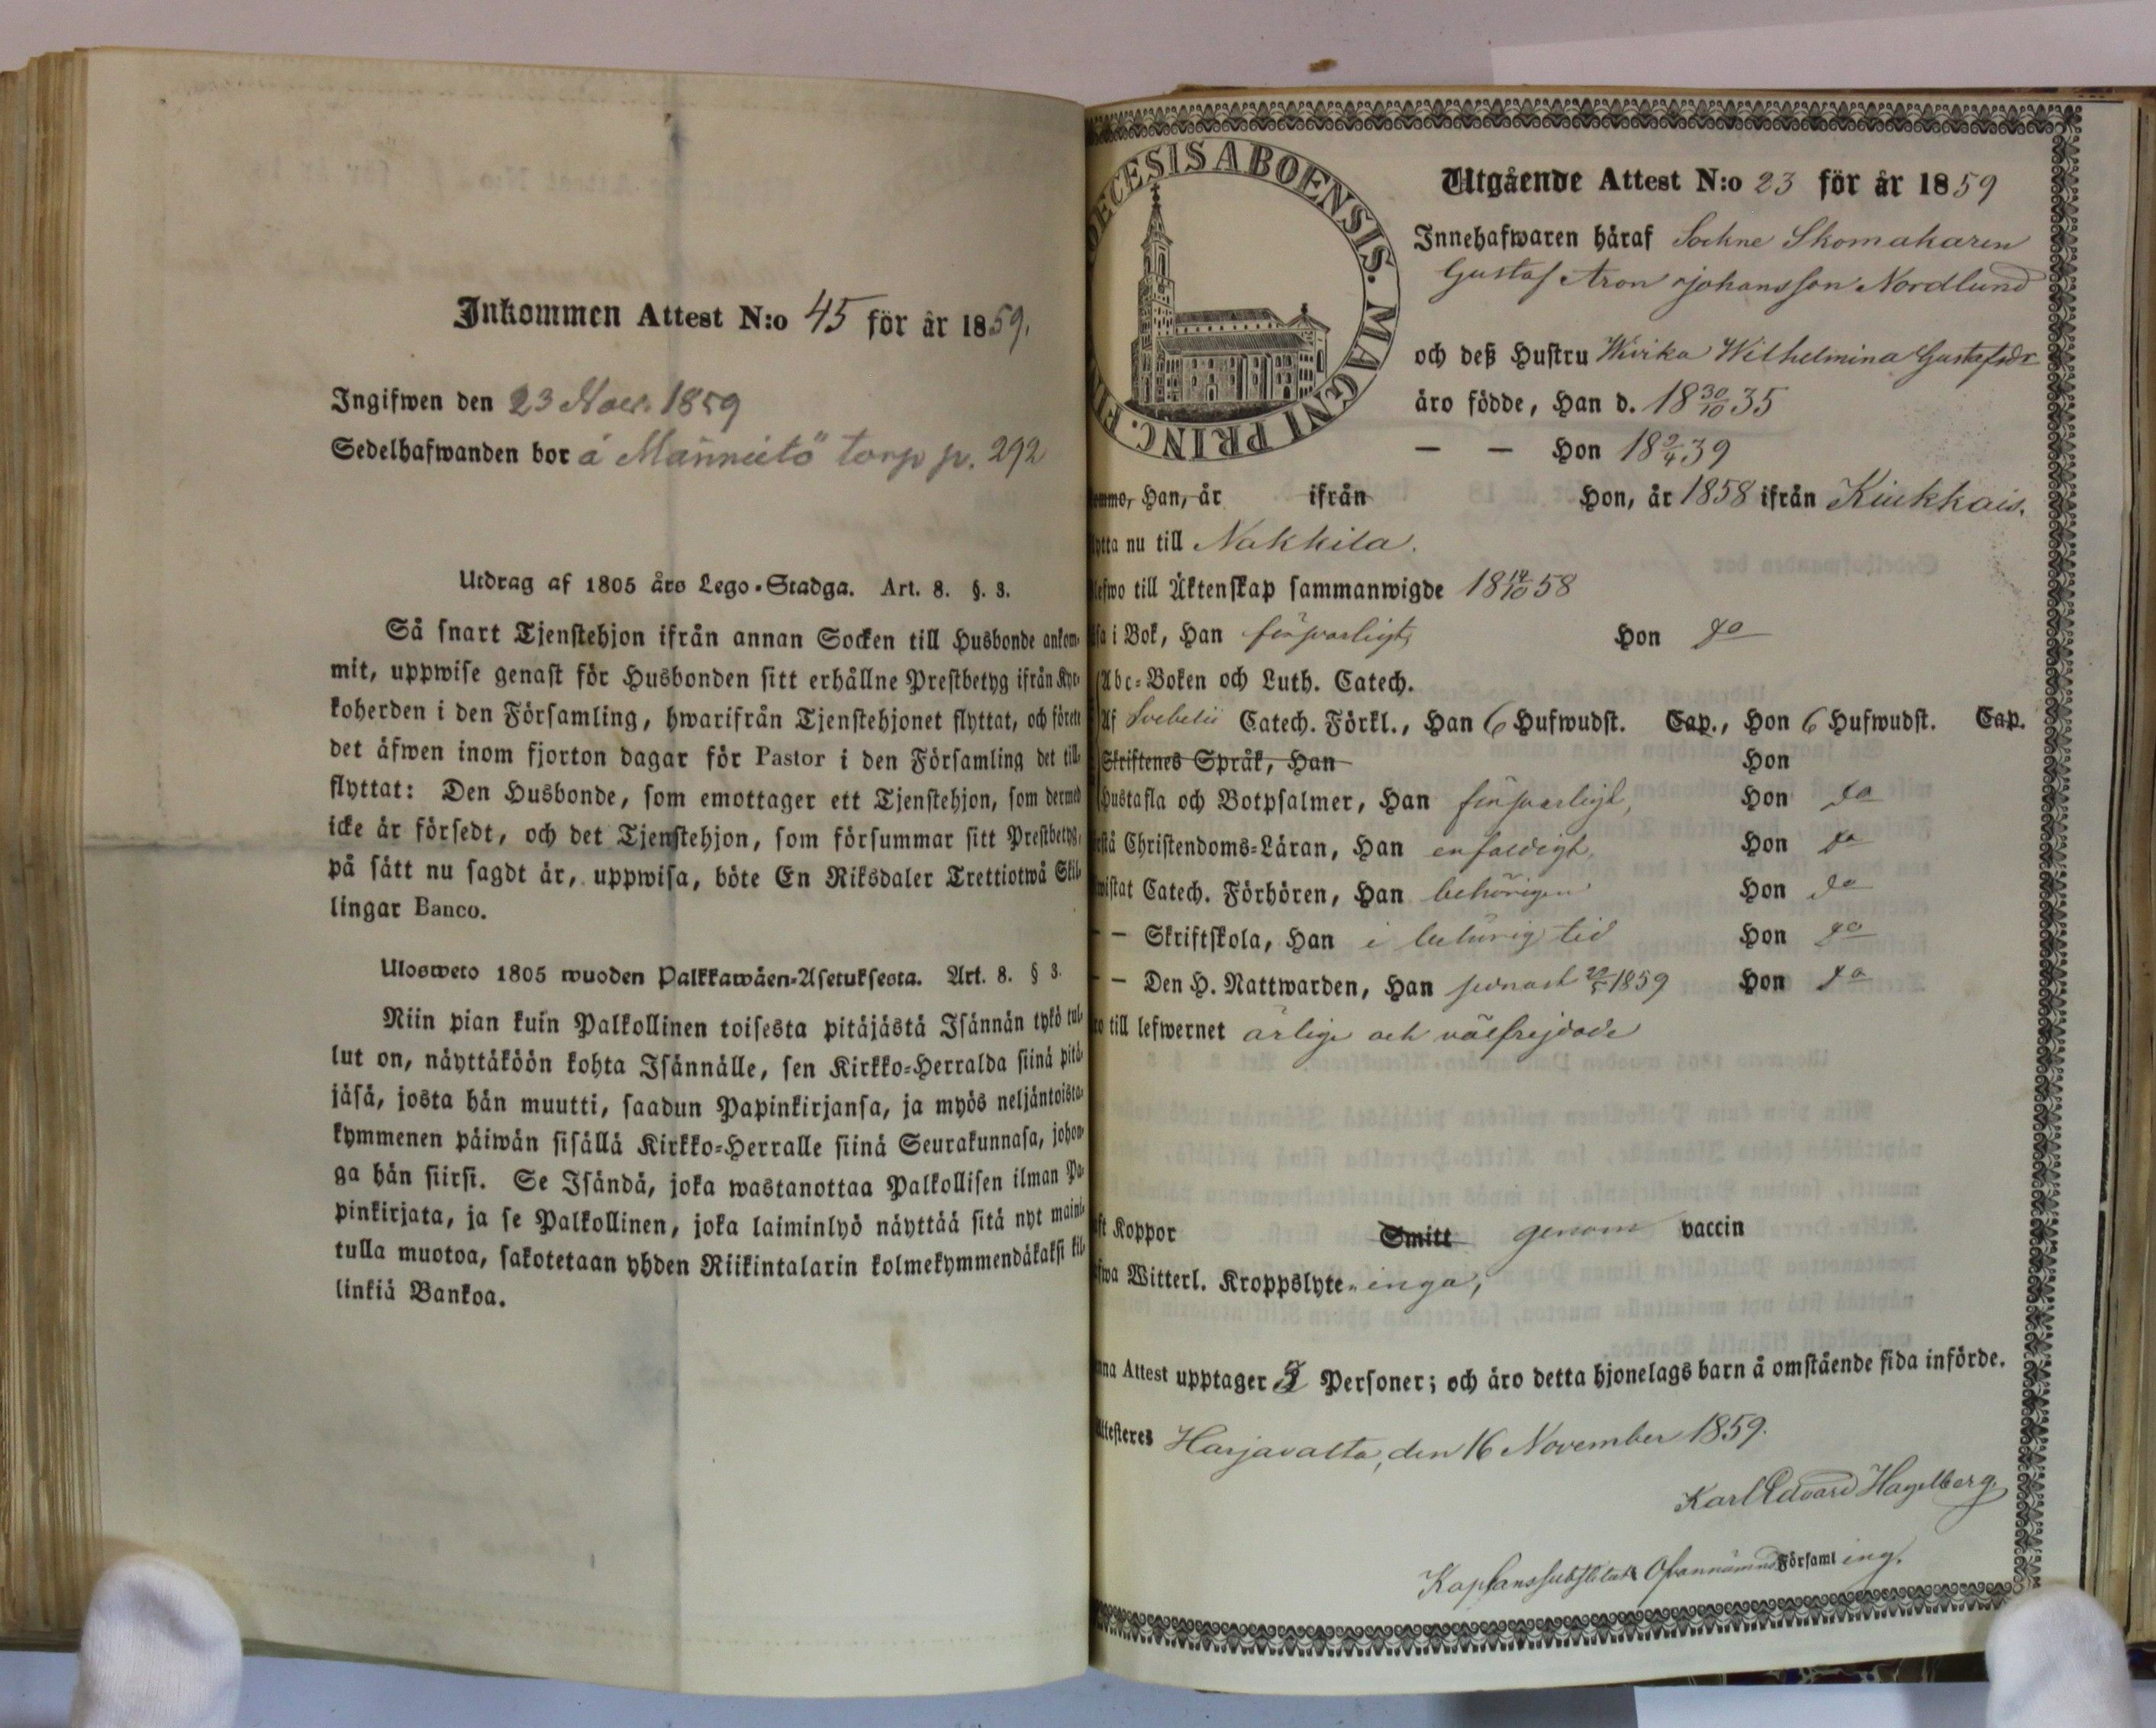 Inkommen Attest N:o 45 för år 1859.
Ingifwen den 23 Nov. 1859
Sedelhafwanden bor å Männistö torp p. 292
Utdrag af 1805 års Lego-Stadga. Art. 8. §. 3.
Så snart Tjenstehjon ifrån annan Socken till Husbonde ankom-
mit, uppwise genast för Husbonden sitt erhållne Prestbetyg ifrån Kyr-
koherden i den Församling, hwarifrån Tjenstehjonet flyttat, och förete
det äfwen inom fjorton dagar för Pastor i den Församling det till-
flyttat: Den Husbonde, som emottager ett Tjenstehjon, som dermed
icke är försedt, och det Tjenstehjon, som försummar sitt Prestbetyg,
på sätt nu sagdt är, uppwisa, böte En Riksdaler Trettiotwå Skil-
lingar Banco.
Ulosweto 1805 wuoden Palkkawäen-Asetuksesta. Art. 8. § 3.
Niin pian kuin Palkollinen toisesta pitäjästä Isännän tykö tul-
lut on, näyttäköön kohta Isännälle, sen Kirkko-Herralda siinä pitä-
jäsä, josta hän muutti, saadun Papinkirjansa, ja myös neljäntoista-
kymmenen päiwän sisällä Kirkko-Herralle siinä Seurakunnasa, johon-
ga hän siirsi. Se Isändä, joka wastanottaa Palkollisen ilman Pa-
pinkirjata, ja se Palkollinen, joka laiminlyö näyttää sitä nyt maini-
tulla muotoa, sakotetaan yhden Riikintalarin kolmekymmendäkaksi kil-
linkiä Bankoa.
ECESIS ABOENSIS. MAGNI PRINC. FIN
Utgående Attest N:o 23 för år 1859
Innehafwaren häraf Sockne Skomakaren
Gustaf Aron Johansson Nordlund
och deß Hustru Wivika Wilhelmina Gustafsdr
äro födde, Han d. 18 30/10 35
— — Hon 18 2/4 39
omme, Han, år ifrån Hon, år 1858 ifrån Kiukkais.
ytta nu till Nakkila.
lefwo till Äktenskap sammanwigde 18 14/10 58
äsa i Bok, Han försvarligt, Hon do
Abc-Boken och Luth. Catech.
Af Svebelii Catech. Förkl., Han 6 Hufwudst. Cap., Hon 6 Hufwudst. Cap.
Skriftenes Språk, Han Hon
Hustafla och Botpsalmer, Han försvarligt, Hon do
rstå Christendoms-Läran, Han enfaldigt, Hon do
wistat Catech. Förhören, Han behörigen Hon do
— — Skriftskola, Han i behörig tid Hon do
— — Den H. Nattwarden, Han senast 29/5 1859 Hon do
ro till lefwernet ärlige och välfrejdade
ft Koppor Smitt genom vaccin
fwa Witterl. Kroppslyte inga,
nna Attest upptager 3 Personer; och äro detta hjonelags barn å omstående sida införde.
Attesteres Harjavalta, den 16 November 1859.
Karl Edvard Hagelberg.
Kaplanssubstitut i Ofvannämnd Församling.